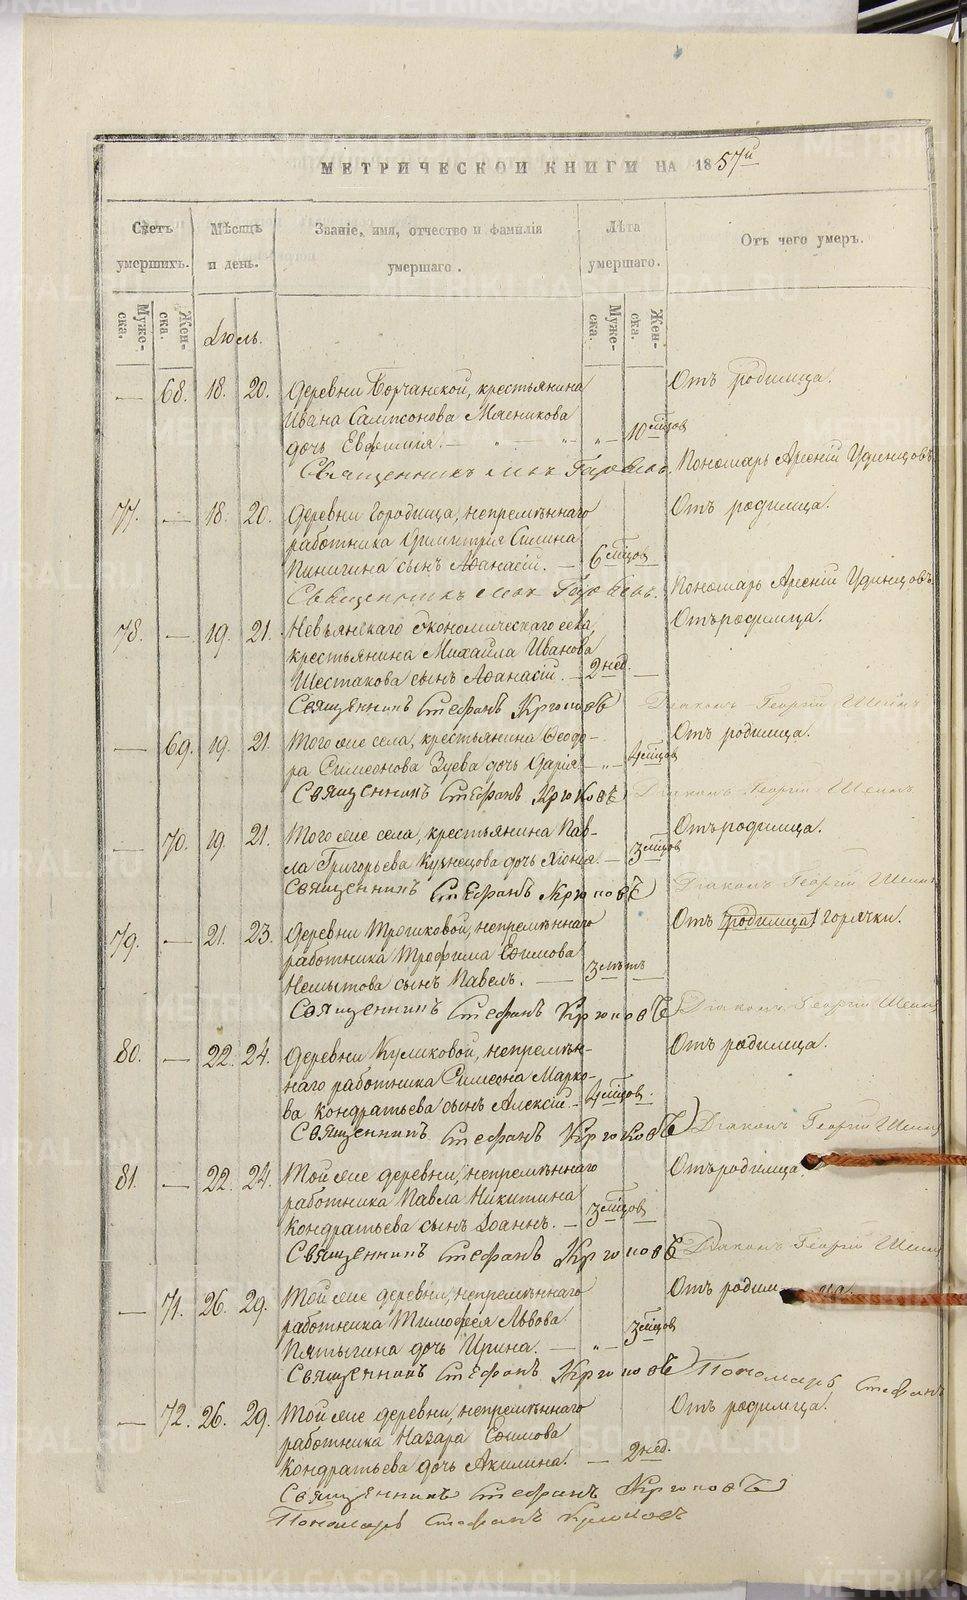 МЕТРИЧЕСКОЙ КНИГИ НА 1857й
Счетъ умершихъ.
Мѣсяцъ и день.
Званіе, имя, отчество и фамилія умершаго.
Лѣта умершаго.
Отъ чего умеръ.
Муже-ска.
Жен-ска.
Муже-ска.
Жен-ска.
Іюль.
— 68. 18. 20. Деревни Борчанской, крестьянина Отъ родимца.
Ивана Сампсонова Мясникова
дочь Евфимія. — „ — „ „ 10 мѣсцов
Священникъ Пономарь Арсеній Удинцовъ.
77. — 18. 20. Деревни Городища, непремѣннаго Отъ родимца.
работника Димитрія Силина
Пинигина сынъ Аѳанасій. — 6 мѣсцов
Священникъ Пономарь Арсеній Удинцовъ.
78. — 19. 21. Невьянскаго экономическаго села, Отъ родимца.
крестьянина Михаила Иванова
Шестакова сынъ Аѳанасій. — 2 нед. —
Священникъ Стефанъ Крюковъ Діаконъ Георгій
— 69. 19. 21. Того же села, крестьянина Ѳеодо- Отъ родимца.
ра Симеонова Зуева дочь Дарія — „ — 4 мѣсцов
Священникъ Стефанъ Крюковъ Діаконъ Георгій
— 70. 19. 21. Того же села, крестьянина Пав- Отъ родимца.
ла Григорьева Кузнецова дочь Хіонія. — 3 мѣсцов
Священникъ Стефанъ Крюковъ Діаконъ Георгій
79. — 21. 23. Деревни Трошковой, непремѣннаго Отъ родимца горячки.
работника Трофима Ефимова
Немытова сынъ Павелъ. — 3 лѣтъ
Священникъ Стефанъ Крюковъ Діаконъ Георгій
80. — 22. 24. Деревни Куликовой, непремѣн- Отъ родимца.
наго работника Симеона Марко-
ва Кондратьева сынъ Алексій — 4 мѣсцов.
Священникъ Стефанъ Крюковъ Діаконъ Георгій
81. — 22. 24. Той же деревни, непремѣннаго Отъ родимца
работника Павла Никитина
Кондратьева сынъ Іоаннъ. — 3 мѣсцов
Священникъ Стефанъ Крюковъ Діаконъ Георгій
— 71. 26. 29. Той же деревни, непремѣннаго Отъ родимца.
работника Тимофея Львова
Пятыгина дочь Ирина. — „ — 3 мѣсцов
Священникъ Стефанъ Крюковъ Пономарь Стефанъ
— 72. 26. 29. Той же деревни, непремѣннаго Отъ родимца.
работника Назара Ефимова
Кондратьева дочь Акилина. — 2 нед.
Священникъ Стефанъ Крюковъ
Пономарь Стефанъ
METRIKI.GASO-URAL.RU